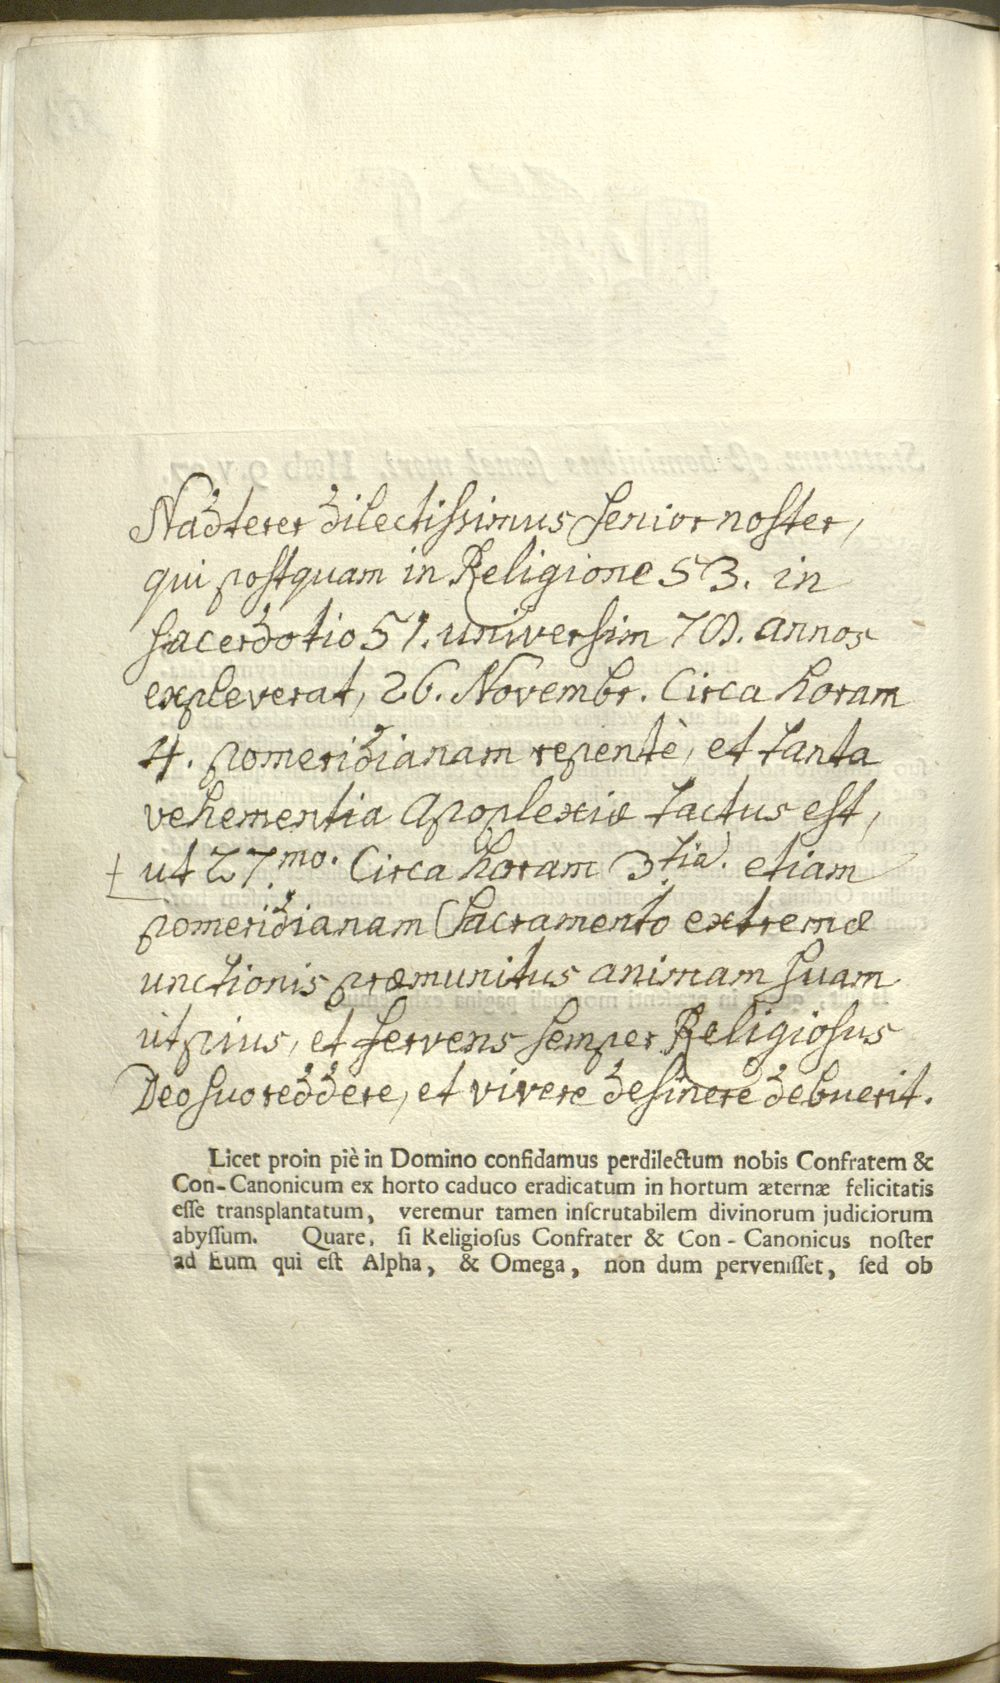 Nadterer dilectissimus Senior noster,
qui postquam in Religione 53. in
sacerdotio 51. universim 70. annos
expleverat, 26. Novembr. Circa horam
4. pomeridianam repentè, et tanta
vehementia Apoplexiæ tactus est,
ut 27.mo. Circa horam 3.tia. etiam
pomeridianam Sacramento extremæ
unctionis præmunitus animam suam
ut pius, et fervens semper Religiosus
Deo suo reddere, et vivere desinere debuerit.
Licet proin piè in Domino confidamus perdilectum nobis Confratem &
Con-Canonicum ex horto caduco eradicatum in hortum æternæ felicitatis
eſſe transplantatum, veremur tamen inſcrutabilem divinorum judiciorum
abyſſum. Quare, ſi Religioſus Confrater & Con-Canonicus noſter
ad Eum qui eſt Alpha, & Omega, non dum perveniſſet, ſed ob